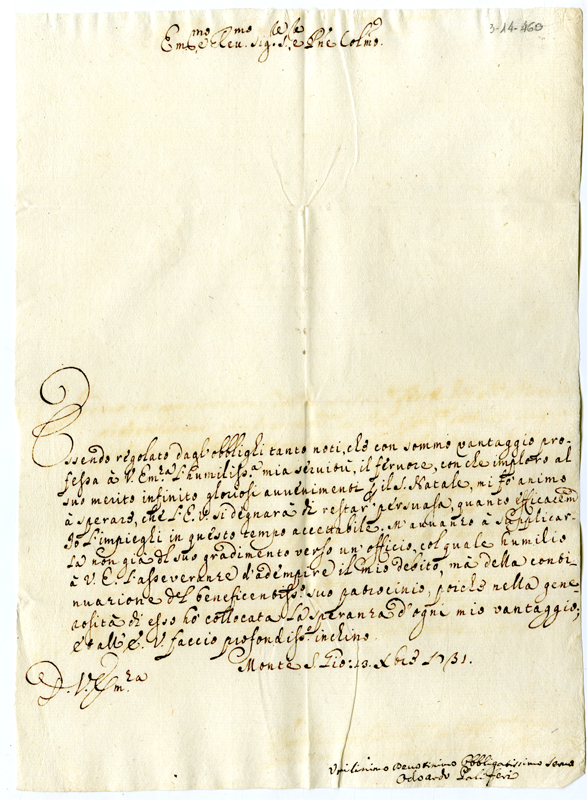 3-14-460
Em.mo e Rev.mo Sig.re Sig.re e Pne Colmo.
Essendo regolato dagl'obblighi tanto noti, che con sommo vantaggio pro-
fessa à V. Em.za l'humiliss.a mia servitù, il fervore, con che imploro al
suo merito infinito gloriosi avvenimenti p il S. Natale, mi fà animo
à sperare, che l'E.V. si degnarà di restar persuasa, quanto efficacem.
Io l'impieghi in questo tempo accettabile. M'avanzo à supplicar-
la non già del suo gradimento verso un'officio, col quale humilio
à V. E. l'asseveranze d'adempire il mio debito, mà della conti-
nuazione del beneficentiss.o suo patrocinio, poiche nella gene-
rosità di esso hò collocata la speranza d'ogni mio vantaggio;
e all'E. V. faccio profondiss.o inchino.
Monte S. Gio: 13. Xbre 1731.
D. V. Em.za
Umilissimo Devotissimo Obbligatissimo Serve
Odoardo